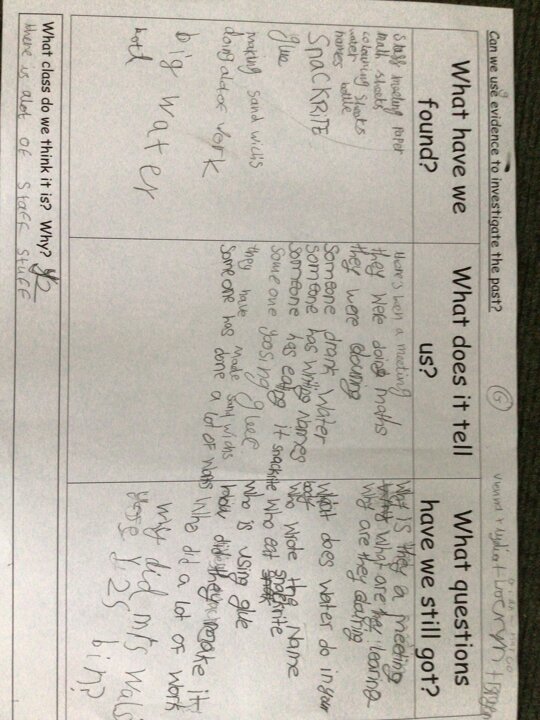 Can we use evidence to investigate the past?
G
What have we found?
Staff meeting paper
math sheets
colouring sheets
water bottle
names
SNACKRITE
glue
making sand wichs
doing alot of work
big water
botl
What does it tell us?
there's been a meeting
they were doing maths
they were
Someone drank water
someone has names
someone has it
someone yoosing gleef
they have made sand wichs
someone has done a lot of
What questions have we still got?
Why is they a meeting
what are they
why are they
What does water do in your
body
who wrote the Name
who eat snackrite
who is using glue
how did they make it
Who did a lot of work
my did mrs Wals
yose y2s
bin?
What class do we think it is? Why? Y2
there is alot of staff stuff